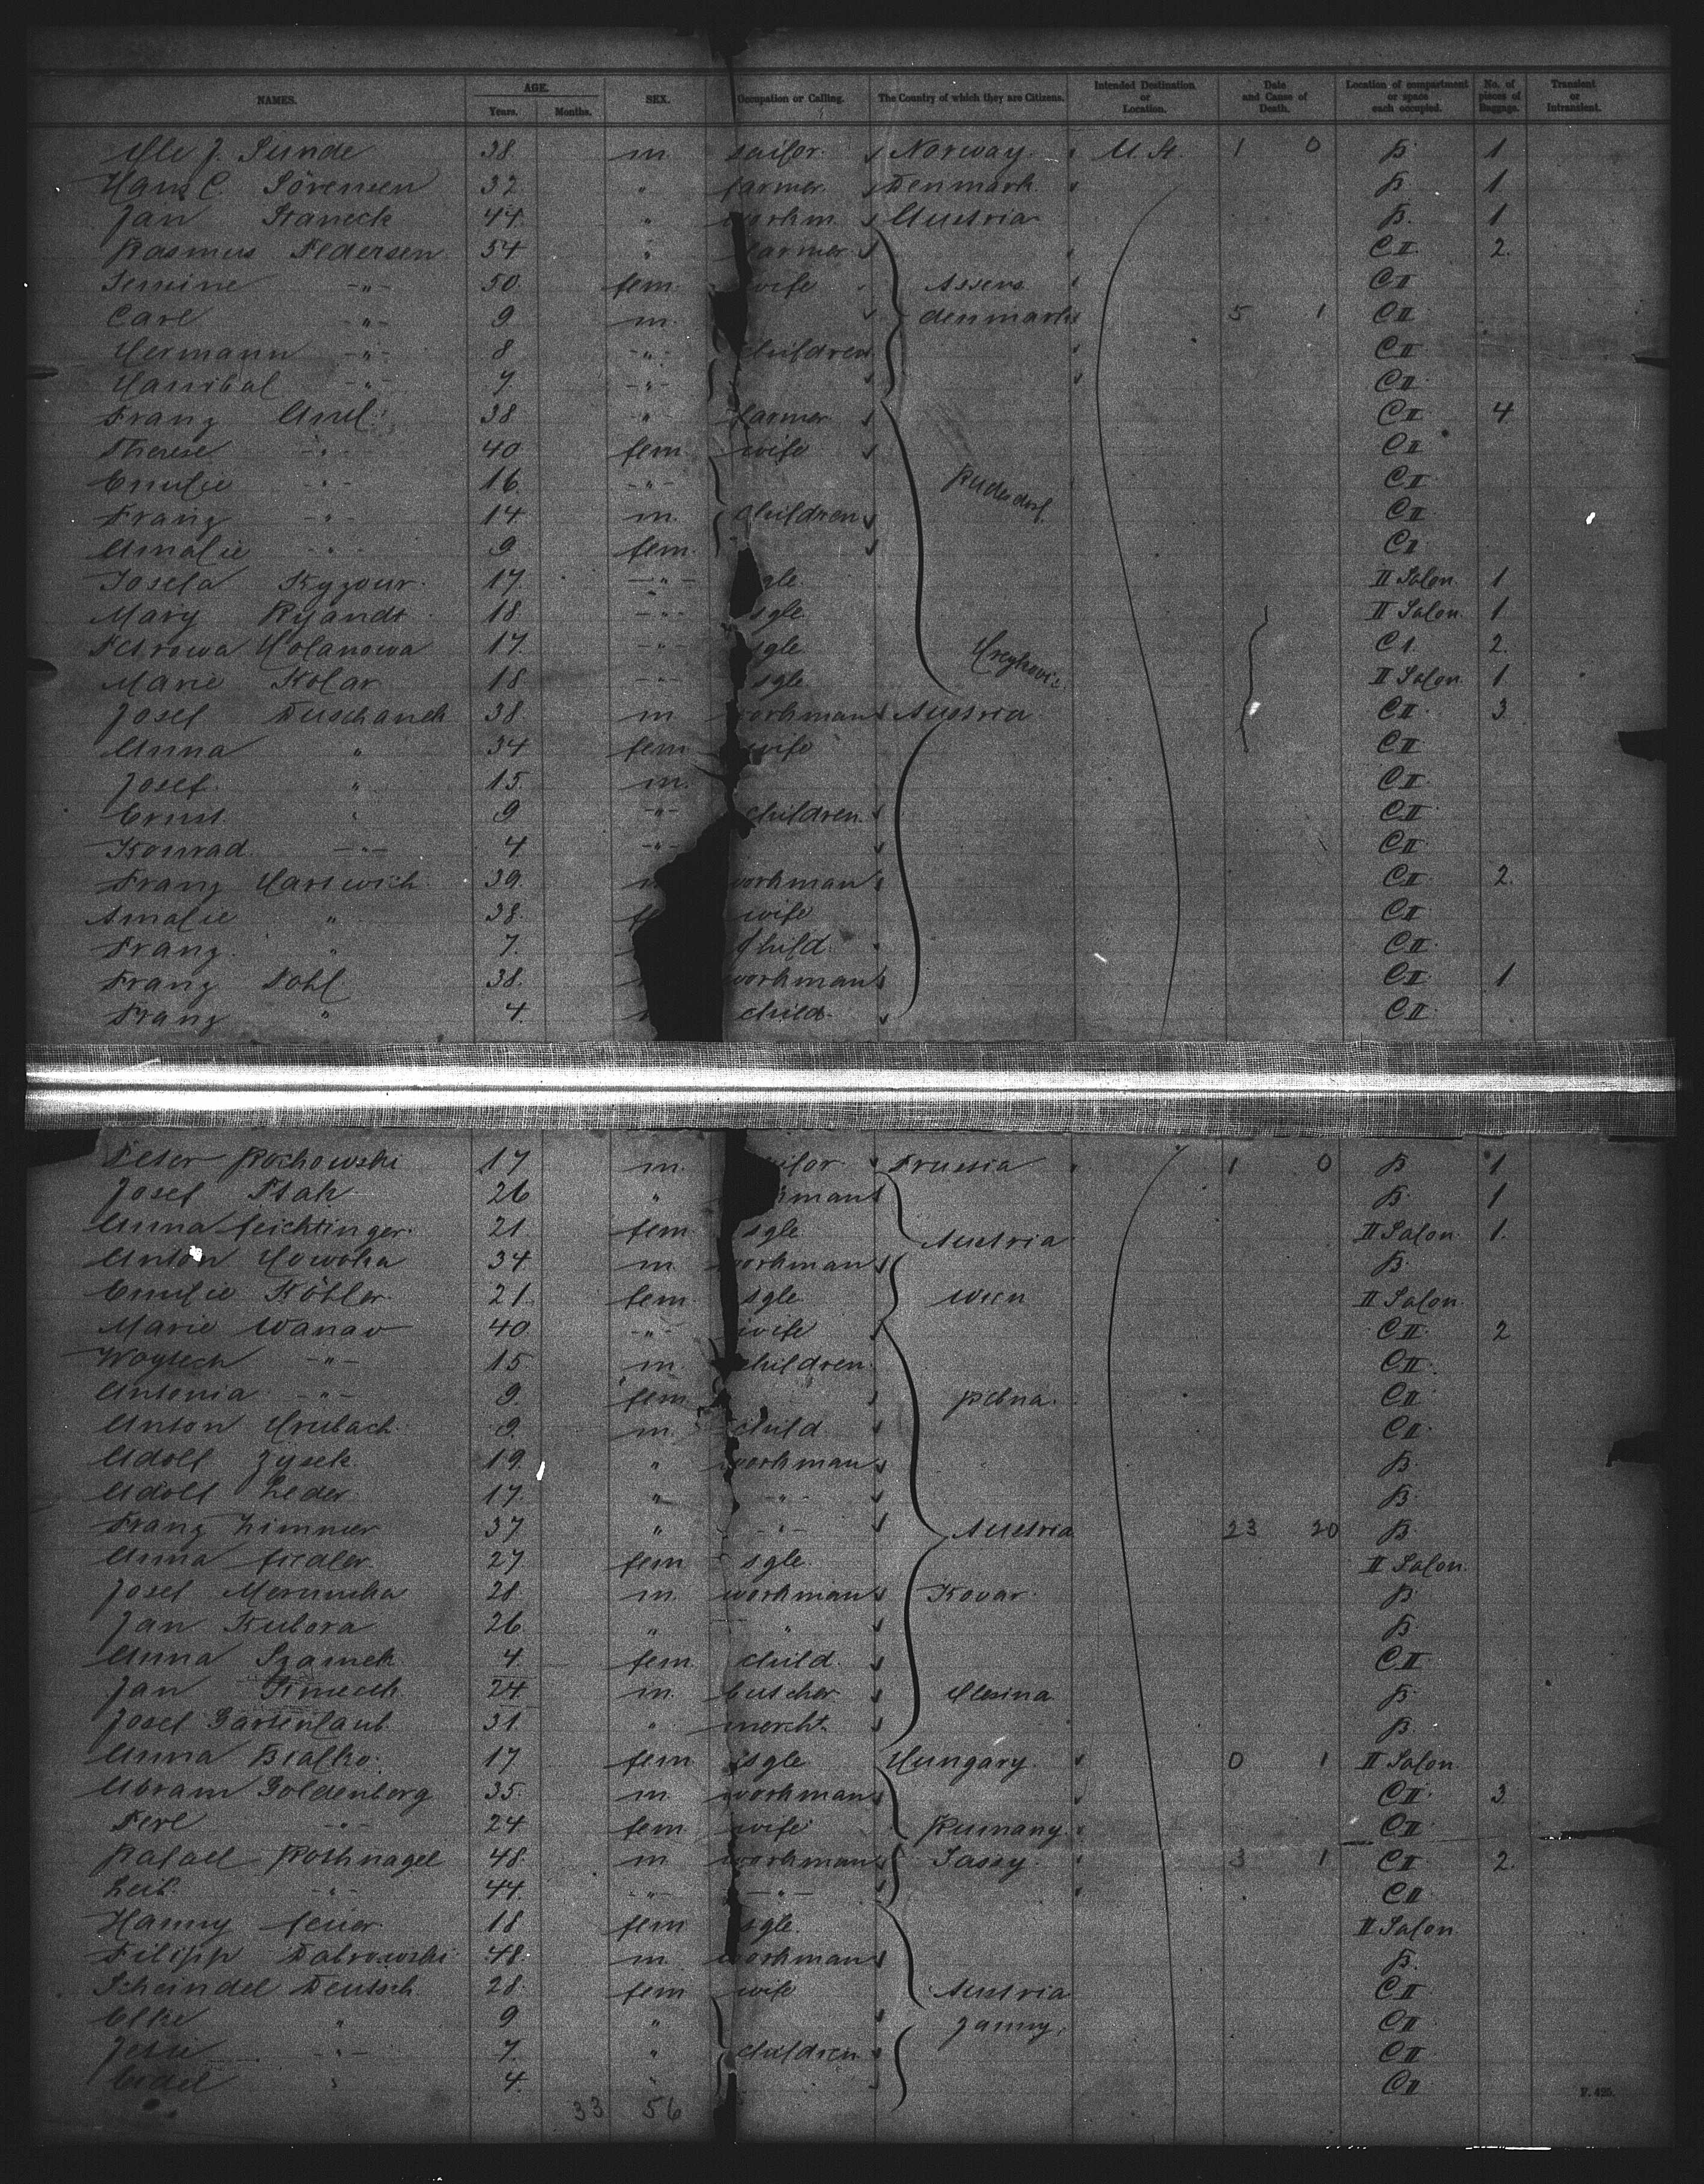 NAMES. AGE. Years. Months. SEX. Occupation or Calling. The Country of which they are Citizens. Intended Destination or Location. Date and Cause of Death. Location of compartment or space each occupied. No. of pieces of Baggage. Transient or Intransient.
Ole J. Sunde 38 m sailor Norway U. St. 1 0 B 1
Hans C. Sörensen 32 " farmer Denmark B 1
Jan Staneck 44 " workm. Austria B. 1
Rasmus Pedersen 54 " farmer C II 2.
50 fem wife Assens C II
Carl -"- 9 m. denmark 5 1 C II
Hermann -"- 8 -"- children C II
Hanibal -"- 7 -"- C II
Franz 38 " farmer C II 4
Therese -"- 40 fem wife C II
Emilie -"- 16 -"- C II
Franz -"- 14 m. Children C II
Amalie -"- 9 fem. C II
Josefa Kyzour 17 -"- gle II Salon. 1
Mary 18 -"- sgle II Salon. 1
Petrowa Holanowa 17 -"- sgle C I. 2.
Marie Kolar 18 -"- sgle II Salon. 1
Josef Duschanek 38 m workman Austria C II 3
Anna " 34 fem wife C II
Josef " 15 m. C II
Ernst " 9 -"- children C II
Konrad -"- 4 -"- C II
Franz Hartwich 39 workman C II 2.
Amalie " 38. wife C II
Franz " 7. child. C II
Franz Pohl 38. workman C II 1
Franz " 4 child C II
Peter Rochowski 17 m. Prussia 1 0 B 1
Josef Ptak 26 " man B 1
Anna Feichtinger 21 fem sgle Austria II Salon 1.
Anton 34 m workman B
Emilie Köhler 21 fem sgle Wien II Salon
Marie Wanav 40 -"- wife C II 2
Woytech -"- 15 m. children C II
Antonia -"- 9 fem C II
Anton Hrubach 9 m child C II
Adolf Zysek 19 " workman B
Adolf Leder 17 " -"- B
Franz Zimmer 37 " -"- Austria 23 20 B
Anna Fiedler 27 fem sgle II Salon.
Josef 28 m. workman Kovar B
Jan Kubora 26 " " B
Anna Szamek 4 fem child C II
Jan 24 m. butcher B
Josef Gartenlaub 31. " mercht. B
Anna Bialko 17 fem sgle Hungary 0 1 II Salon
Abram Goldenberg 35 m workman C II 3
Perl -"- 24 fem wife Rumany C II
Rafael Rothnagel 48 m workman Jassy 3 1 C II 2.
Leib -"- 44 -"- -"- C II
Hanny Feuer 18 fem sgle II Salon
Filipp Dabrowski 48 m workman B
Scheindel Deutsch 28 fem wife Austria C II
Elke " 9 " C II
-"- 7 " children C II
" 4 C II
33 56
F. 425.